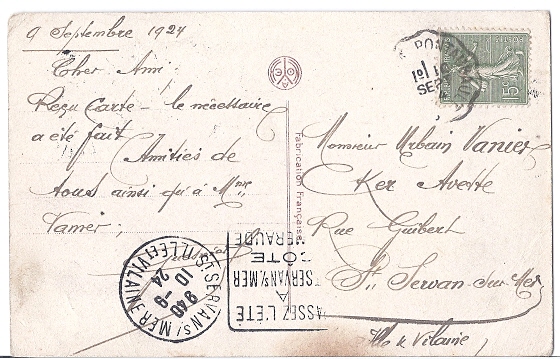 9 Septembre 1924
Cher Ami
Reçu Carte - le nécessaire
a été fait
Amitiés de
tous ainsi qu'à Mme
Vanier,
Fabrication Française
Monsieur Urbain Vanier
Ker Avette
Rue Guibert
St. Servan sur Mer
Ille & Vilaine
15
ST SERVAN S/MER ILLE ET VILAINE
9 40
10 - 9
24
PASSEZ L'ÉTÉ
A
ST SERVAN S/MER
CÔTE
EMERAUDE